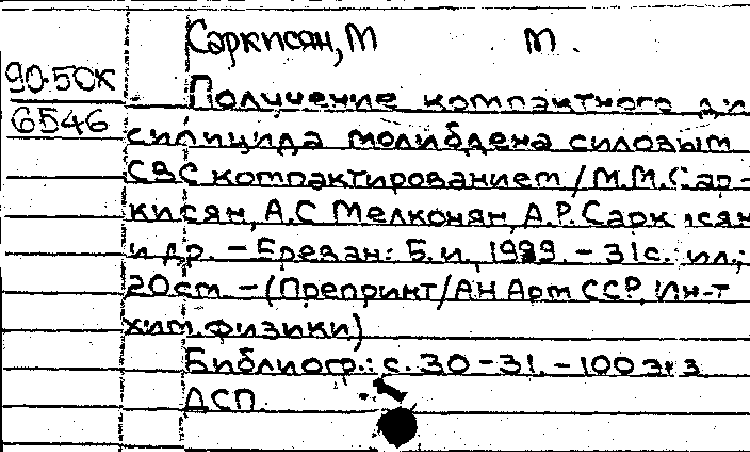 Саркисян, М М.
90-50К
Получение компактного ди
6546
силицида молибдена силовым
СВС компактированием / М.М.Сар-
кисян, А.С Мелконян, А.Р. Саркисян
и др. - Ереван: Б.и., 1989. - 31с.: ил.;
20 ст. - (Препринт/АН Арм ССР, Ин-т
хим. физики)
Библиогр.: с. 30-31. - 100 экз
ДСП